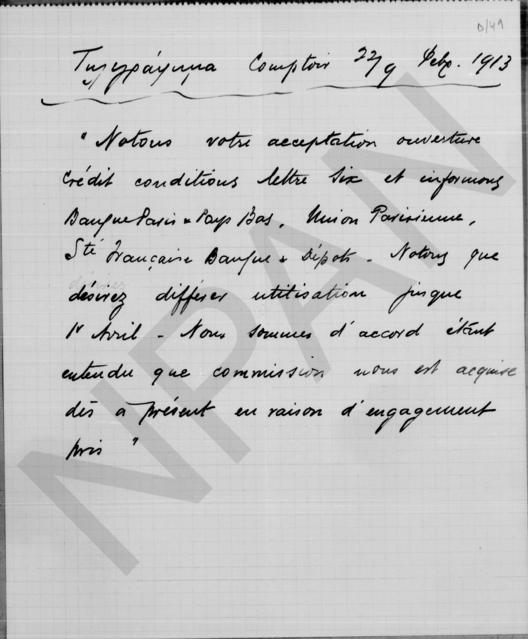 D/49
Τηλεγράφημα Comptoir 22/9 Φεβρ. 1913
"Notons votre acceptation ouverture
crédit conditions lettre six et informons
Banque Paris & Pays Bas, Union Parisienne,
Sté française Banque & Dépôts - Notons que
désirez différer utilisation jusque
1r Avril - Nous sommes d'accord étant
entendu que commission nous est acquise
dès à présent en raison d'engagement
pris"
NPAN